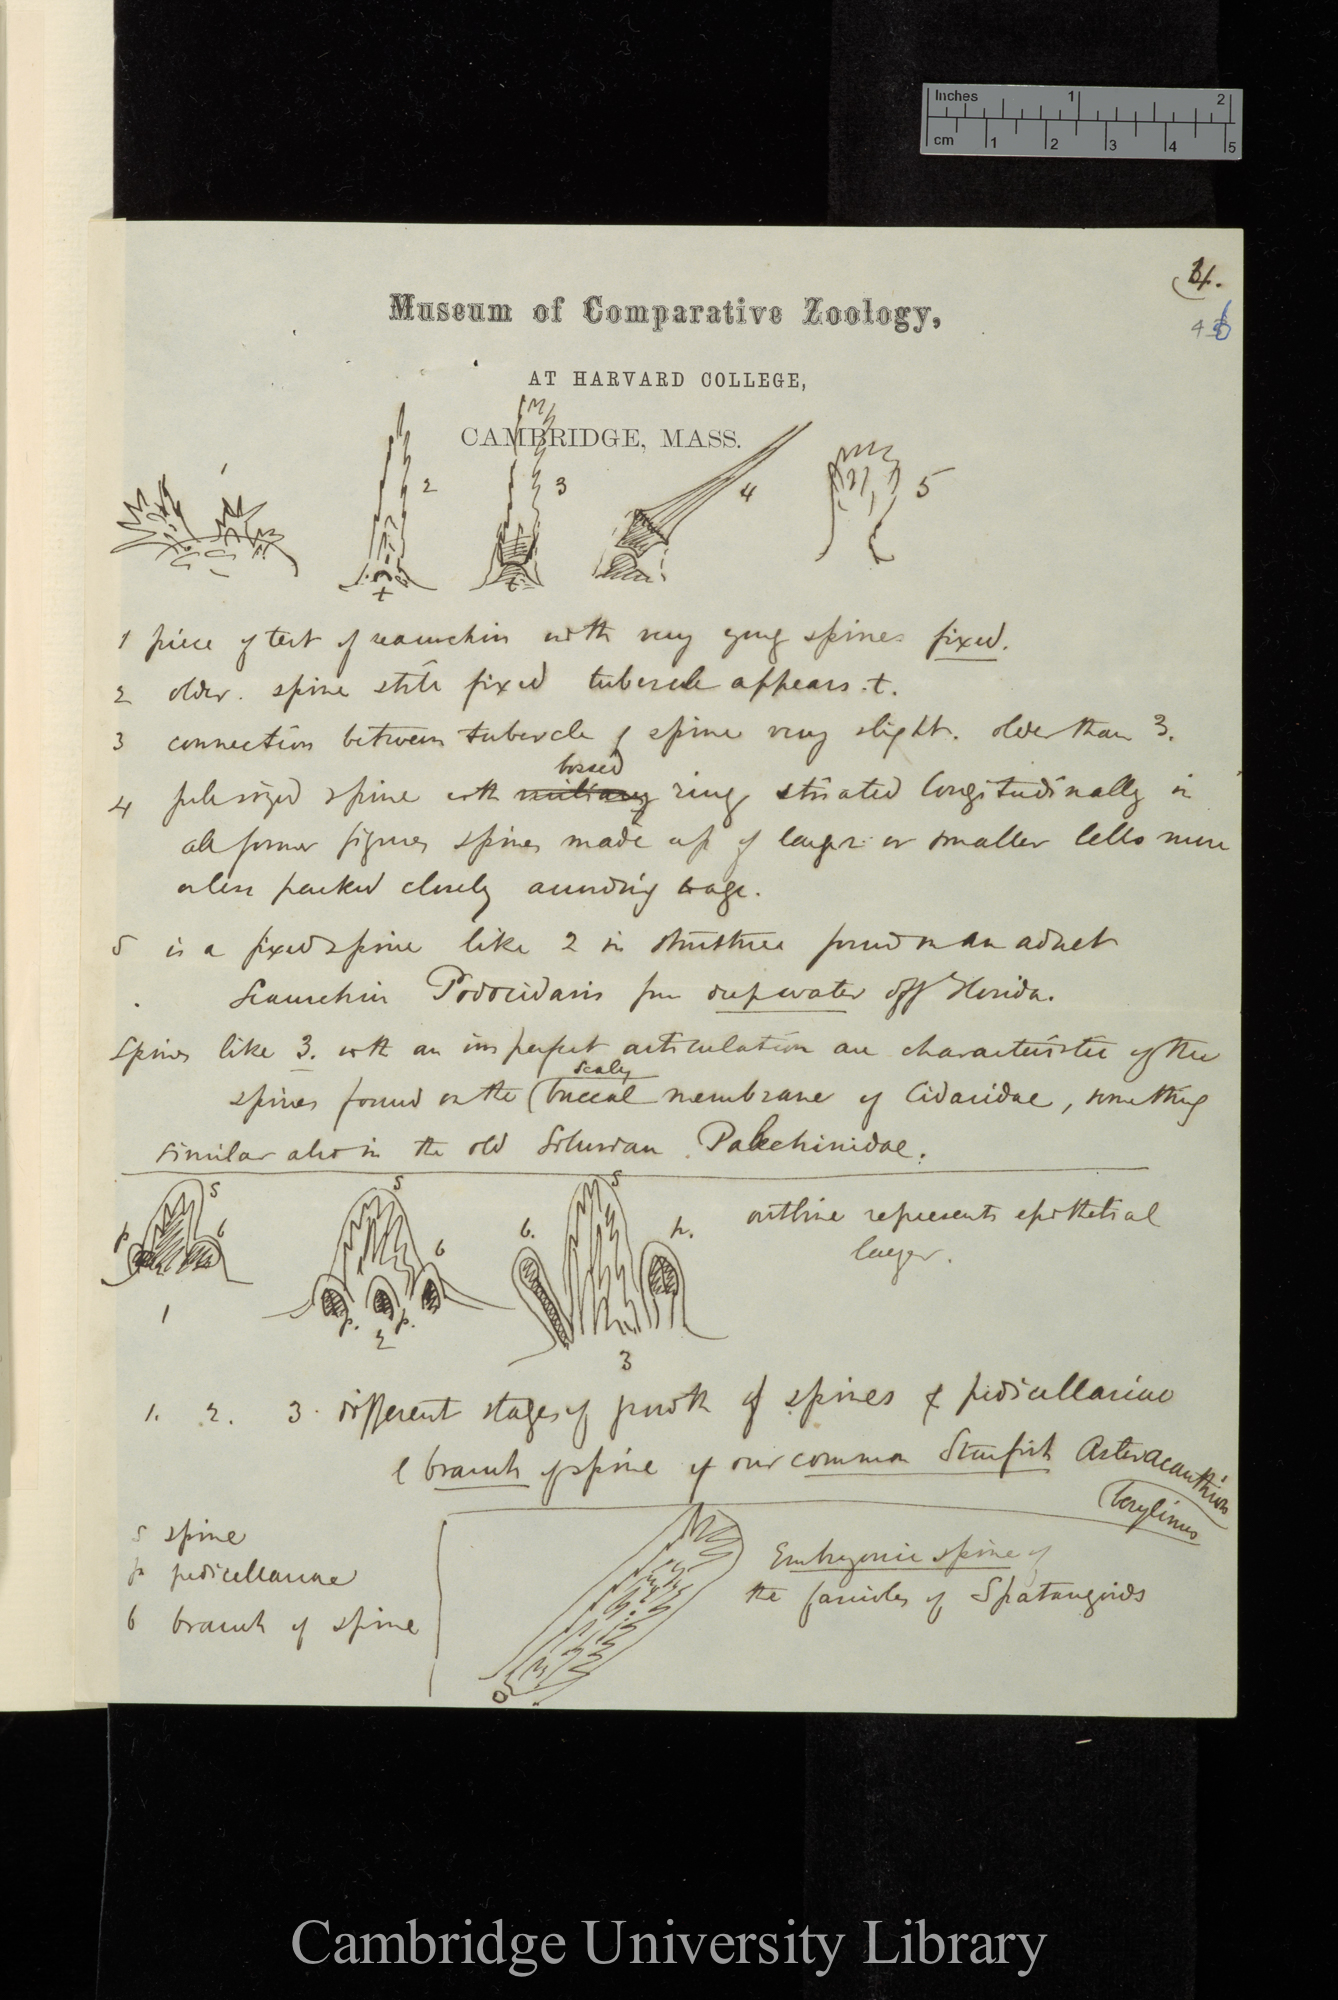 Inches 1 2
cm 1 2 3 4 5
Museum of Comparative Zoology,
AT HARVARD COLLEGE,
CAMBRIDGE, MASS.
1 2 3 4 5
1 piece of test of seaurchin with very young spines fixed.
2 older. spine still fixed tubercle appears. t.
3 connection between tubercle & spine very slight. older than 3.
bossed
4 full sized spine with miliary ring, striated longitudinally in
all former figures spines made up of larger or smaller cells more
or less packed closely according to age.
5 is a fixed spine like 2 in structure found on an adult
Seaurchin Podocidaris from deep water off Florida.
Spines like 3. with an imperfect articulation are characteristic of the
scaly
spines found on the (buccal membrane of Cidaridae, something
similar also in the old Silurian Palechinidae.
s s s
p b b b. p.
outline represents epithelial
layer.
p. p.
1 2 3
1. 2. 3. different stages of growth of spines & pedicellariae
& branch of spine of our common Starfish Asteracanthion
(berylinus
s spine
p pedicellariae
b branch of spine
Embryonic spine of
the fascioles of Spatangoids
Cambridge University Library